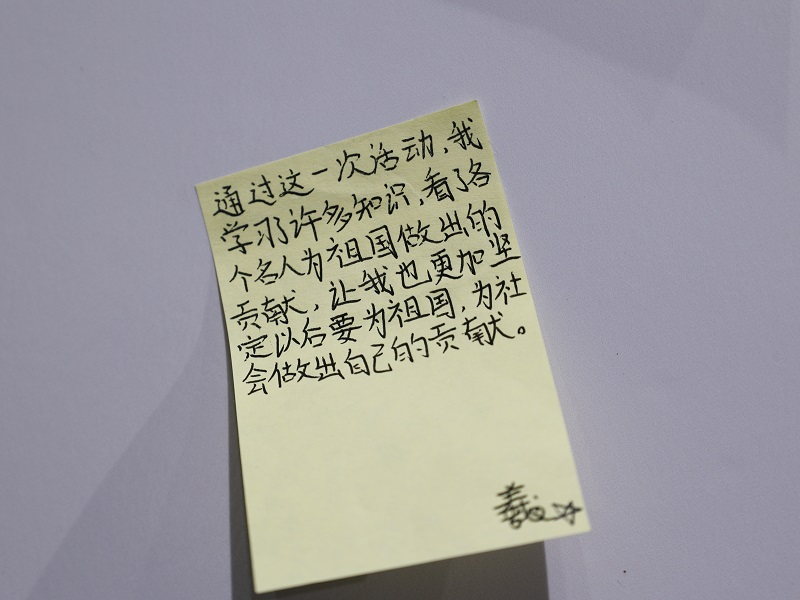 通过这一次活动，我
学习了许多知识，看了各
个名人为祖国做出的
贡献，让我也更加坚
定以后要为祖国，为社
会做出自己的贡献。